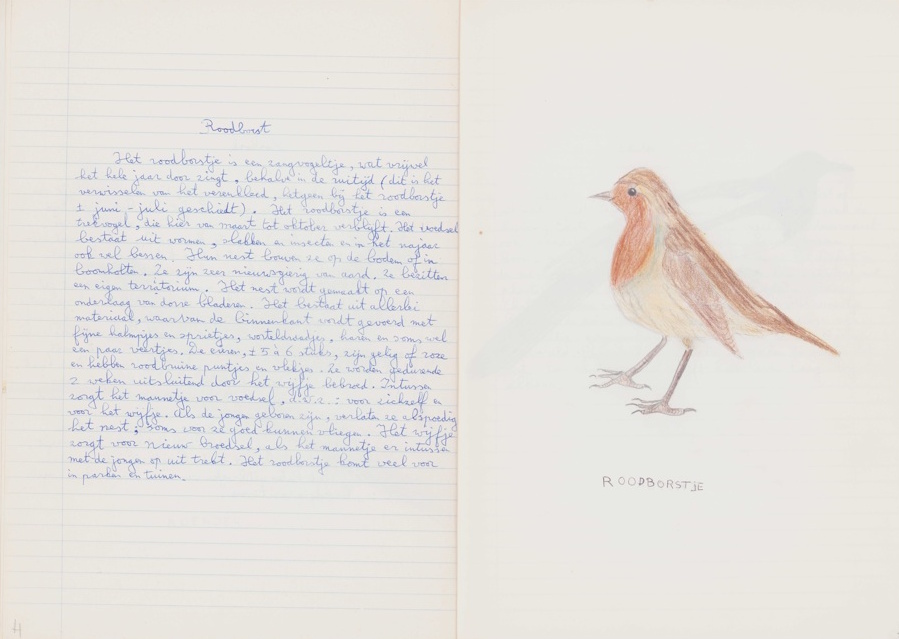 Roodborst
Het roodborstje is een zangvogeltje, wat vrijwel
het hele jaar door zingt, behalve in de ruitijd (dit is het
verwisselen van het verenkleed, hetgeen bij het roodborstje
± juni - juli geschiedt). Het roodborstje is een
trekvogel, die hier van maart tot oktober verblijft. Het voedsel
bestaat uit wormen, slakken en insecten en in het najaar
ook wel bessen. Hun nest bouwen ze op de bodem of in
boomholten. Ze zijn zeer nieuwsgierig van aard. Ze bezitten
een eigen territorium. Het nest wordt gemaakt op een
onderlaag van dorre bladeren. Het bestaat uit allerlei
materiaal, waarvan de binnenkant wordt gevoerd met
fijne halmpjes en sprietjes, worteldraadjes, haren en soms wel
een paar veertjes. De eieren, ± 5 à 6 stuks, zijn gelig of roze
en hebben roodbruine puntjes en vlekjes. Ze worden gedurende
2 weken uitsluitend door het wijfje bebroed. Intussen
zorgt het mannetje voor voedsel, d.w.z.: voor zichzelf en
voor het wijfje. Als de jongen geboren zijn, verlaten ze alspoedig
het nest, soms voor ze goed kunnen vliegen. Het wijfje
zorgt voor nieuw broedsel, als het mannetje er intussen
met de jongen op uit trekt. Het roodborstje komt veel voor
in parken en tuinen.
4
ROODBORSTJE